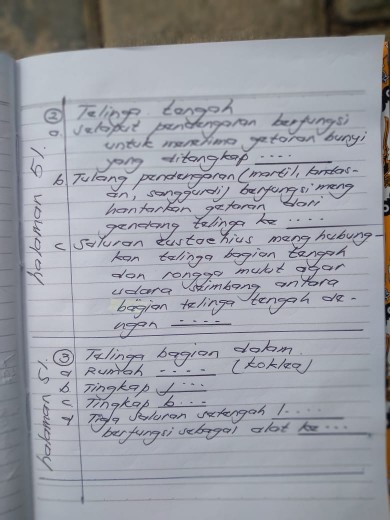 ② Telinga tengah
a. selaput pendengaran berfungsi
untuk menerima getaran bunyi
yang ditangkap ....
b Tulang pendengaran (martil, landas-
an, sanggurdi) berfungsi meng
hantarkan getaran dari
gendang telinga ke ....
c Saluran Eustachius menghubung-
kan telinga bagian tengah
dan rongga mulut agar
udara seimbang antara
bagian telinga tengah de-
ngan ....
halaman 51.
③ Telinga bagian dalam
a Rumah .... (koklea)
b Tingkap J....
c Tingkap b...
d Tiga saluran setengah l....
berfungsi sebagai alat ke...
halaman 51.